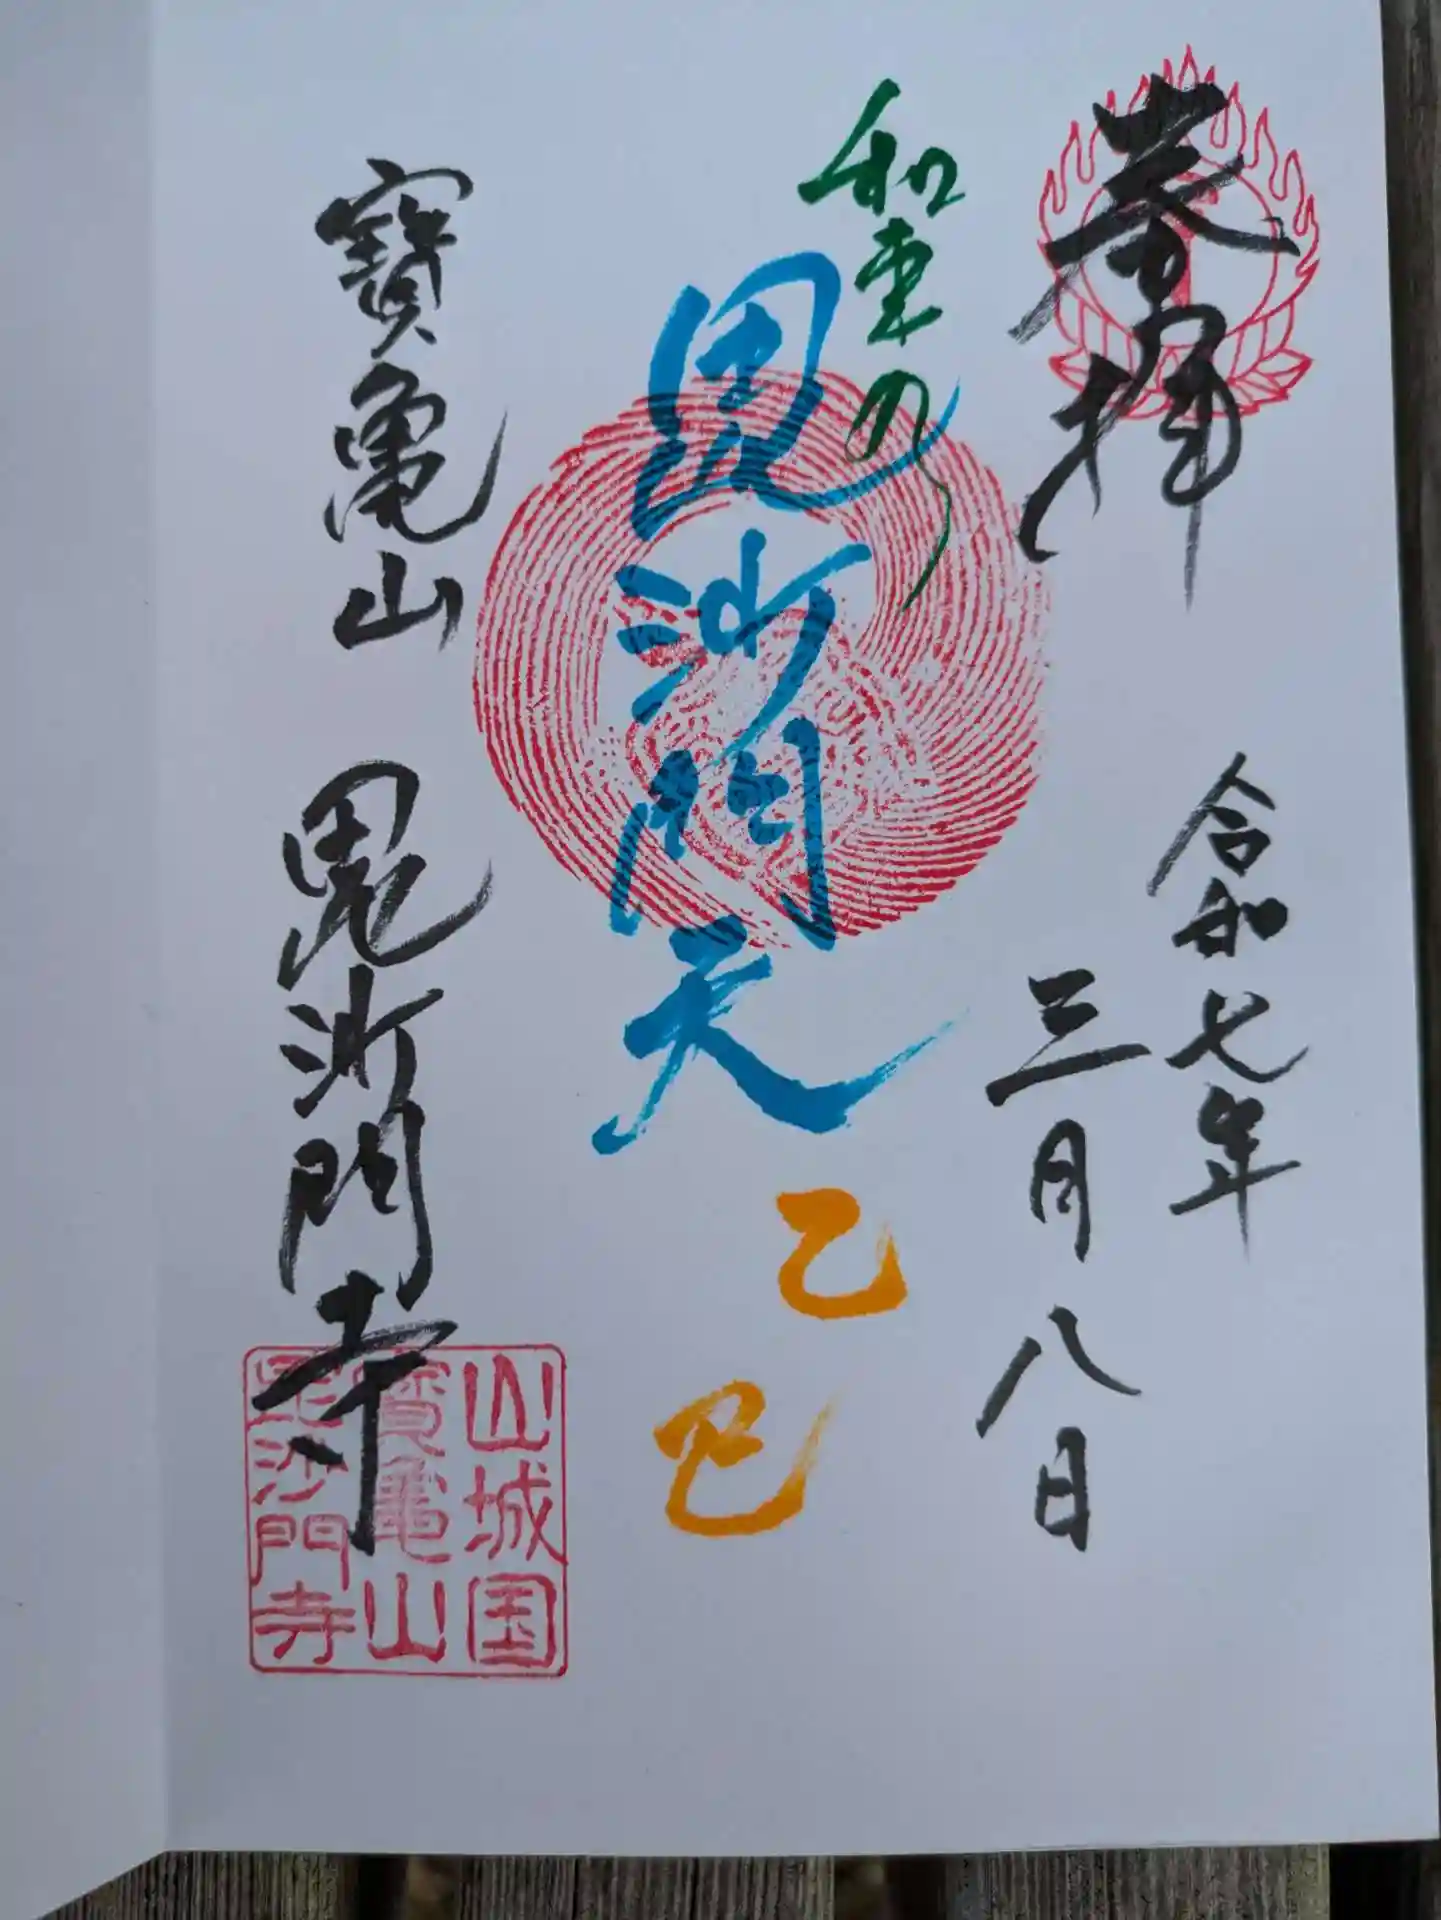 奉拝
令和七年
三月八日
和束の
毘沙門天
乙
巳
寶亀山 毘沙門寺
山城国
寶亀山
毘沙門寺